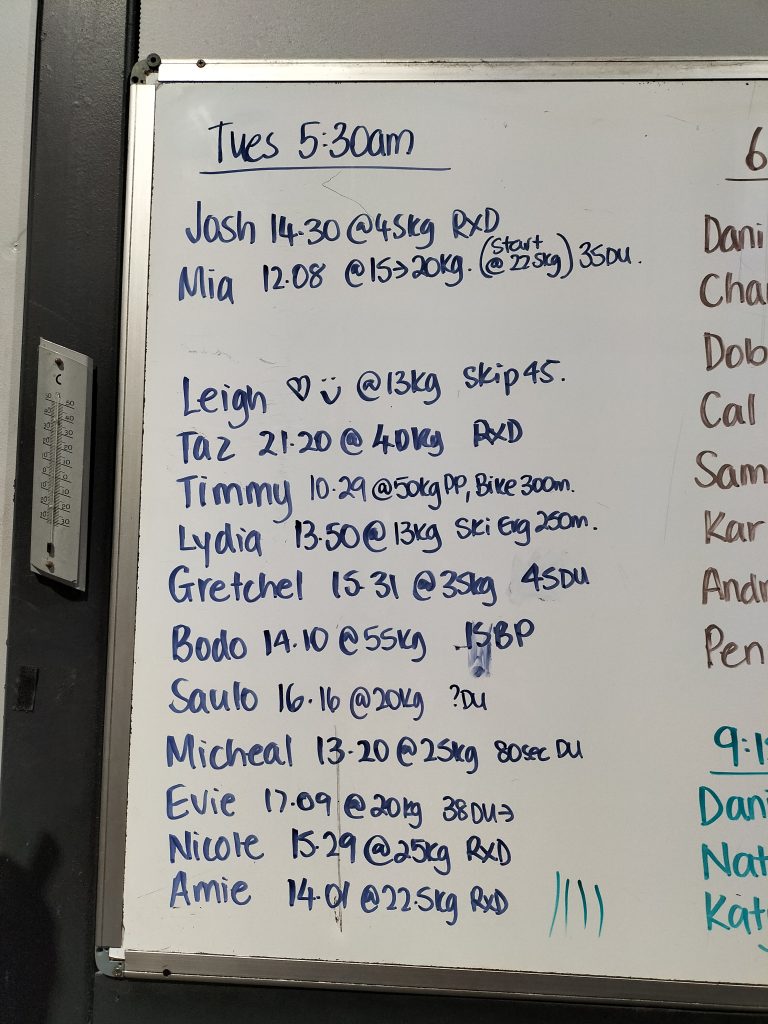 Tues 5:30am
Josh 14.30 @45kg RXD
Mia 12.08 @15→20kg. (Start @ 22.5kg) 35DU.
Leigh ♡ ಀ @13kg Skip 45.
Taz 21.20 @ 40kg RXD
Timmy 10.29 @50kg DP, Bike 300m.
Lydia 13.50 @ 13kg Ski Erg 250m.
Gretchel 15.31 @35kg 45DU
Bodo 14.10 @55kg 15BP
Saulo 16.16 @20kg ?DU
Micheal 13.20 @25kg 80sec DU
Evie 17.09 @20kg 38DU→
Nicole 15.29 @25kg RXD
Amie 14.01 @22.5kg RXD
6
Dani
Cha
Dob
Cal
Sam
Kar
Andr
Pen
9:1
Dani
Nat
Katy